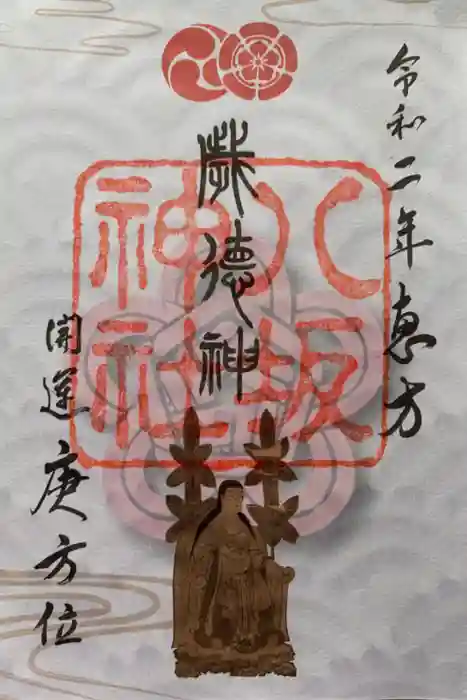 令和二年恵方
歳徳神
八坂神社
開運庚方位